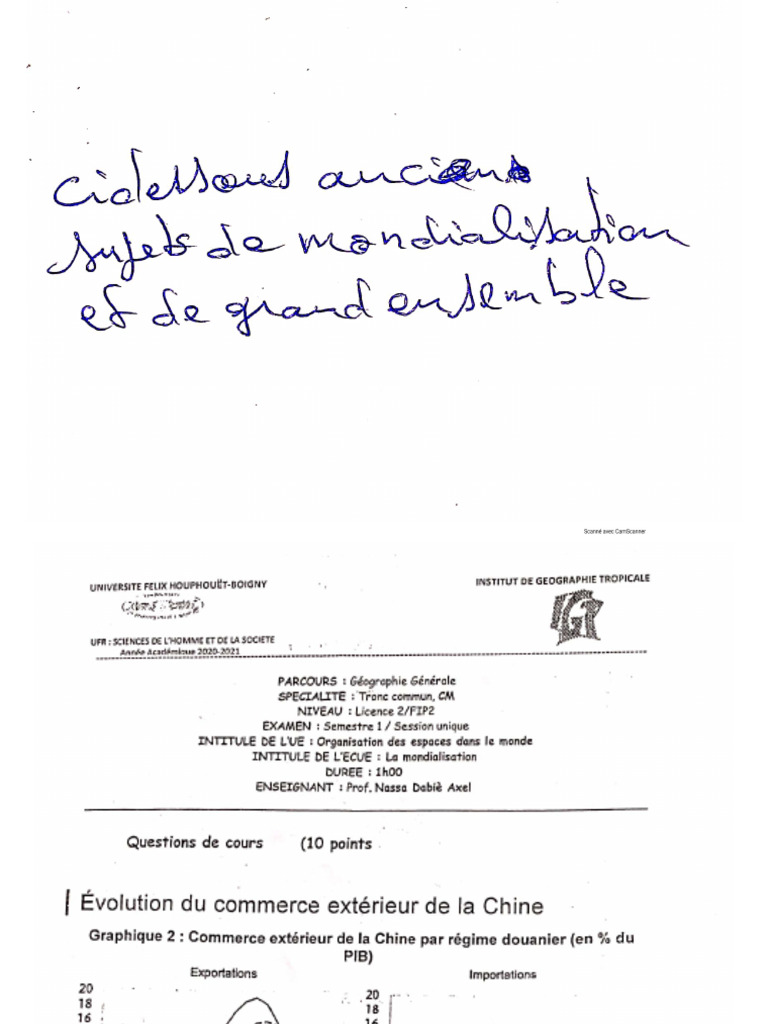 cidessous anciens
sujets de mondialisation
et de grand ensemble
Scanné avec CamScanner
UNIVERSITE FELIX HOUPHOUËT-BOIGNY
INSTITUT DE GEOGRAPHIE TROPICALE
IGT
UFR : SCIENCES DE L'HOMME ET DE LA SOCIETE
Année Académique 2020-2021
PARCOURS : Géographie Générale
SPECIALITE : Tronc commun, CM
NIVEAU : Licence 2/FIP2
EXAMEN : Semestre 1 / Session unique
INTITULE DE L'UE : Organisation des espaces dans le monde
INTITULE DE L'ECUE : La mondialisation
DUREE : 1h00
ENSEIGNANT : Prof. Nassa Dabiè Axel
Questions de cours (10 points
Évolution du commerce extérieur de la Chine
Graphique 2 : Commerce extérieur de la Chine par régime douanier (en % du
PIB)
Exportations
Importations
20
18
16
20
18
16